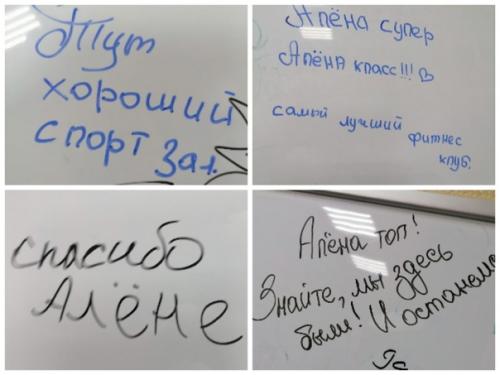 Тут
хороший
спорт зал.
Алёна супер
Алёна класс!!!
самый лучший
фитнес
клуб.
спасибо
Алёне
Алёна топ!
Знайте, мы здесь
были! И останемс